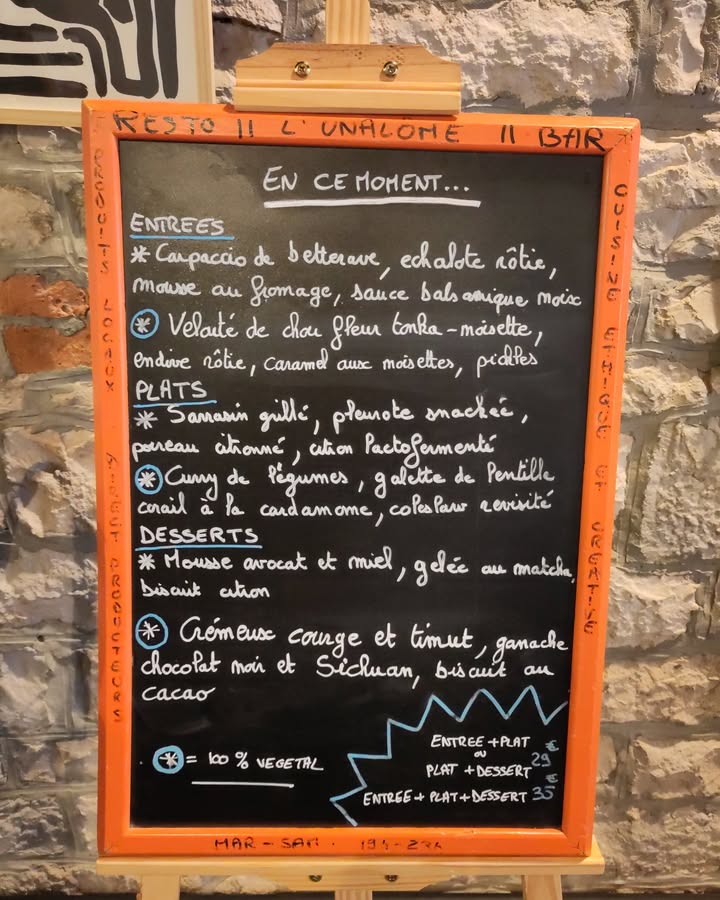 RESTO || L'UNALOME || BAR
EN CE MOMENT...
ENTREES
* Carpaccio de betterave, echalote rôtie,
mousse au fromage, sauce balsamique noix
* Velouté de chou fleur tonka-noisette,
endive rôtie, caramel aux noisettes, pickles
PLATS
* Sarrasin grillé, pleurote snackée,
poireau citronné, citron lactofermenté
* Curry de légumes, galette de lentille
corail à la cardamome, coleslaw revisité
DESSERTS
* Mousse avocat et miel, gelée au matcha,
biscuit citron
* Crémeux courge et timut, ganache
chocolat noir et Sichuan, biscuit au
cacao
* = 100 % VEGETAL
ENTREE + PLAT
ou
PLAT + DESSERT 29€
ENTREE + PLAT + DESSERT 35€
PRODUITS LOCAUX DIRECT PRODUCTEURS
CUISINE ETHIQUE ET CREATIVE
MAR - SAM . 19h-23h